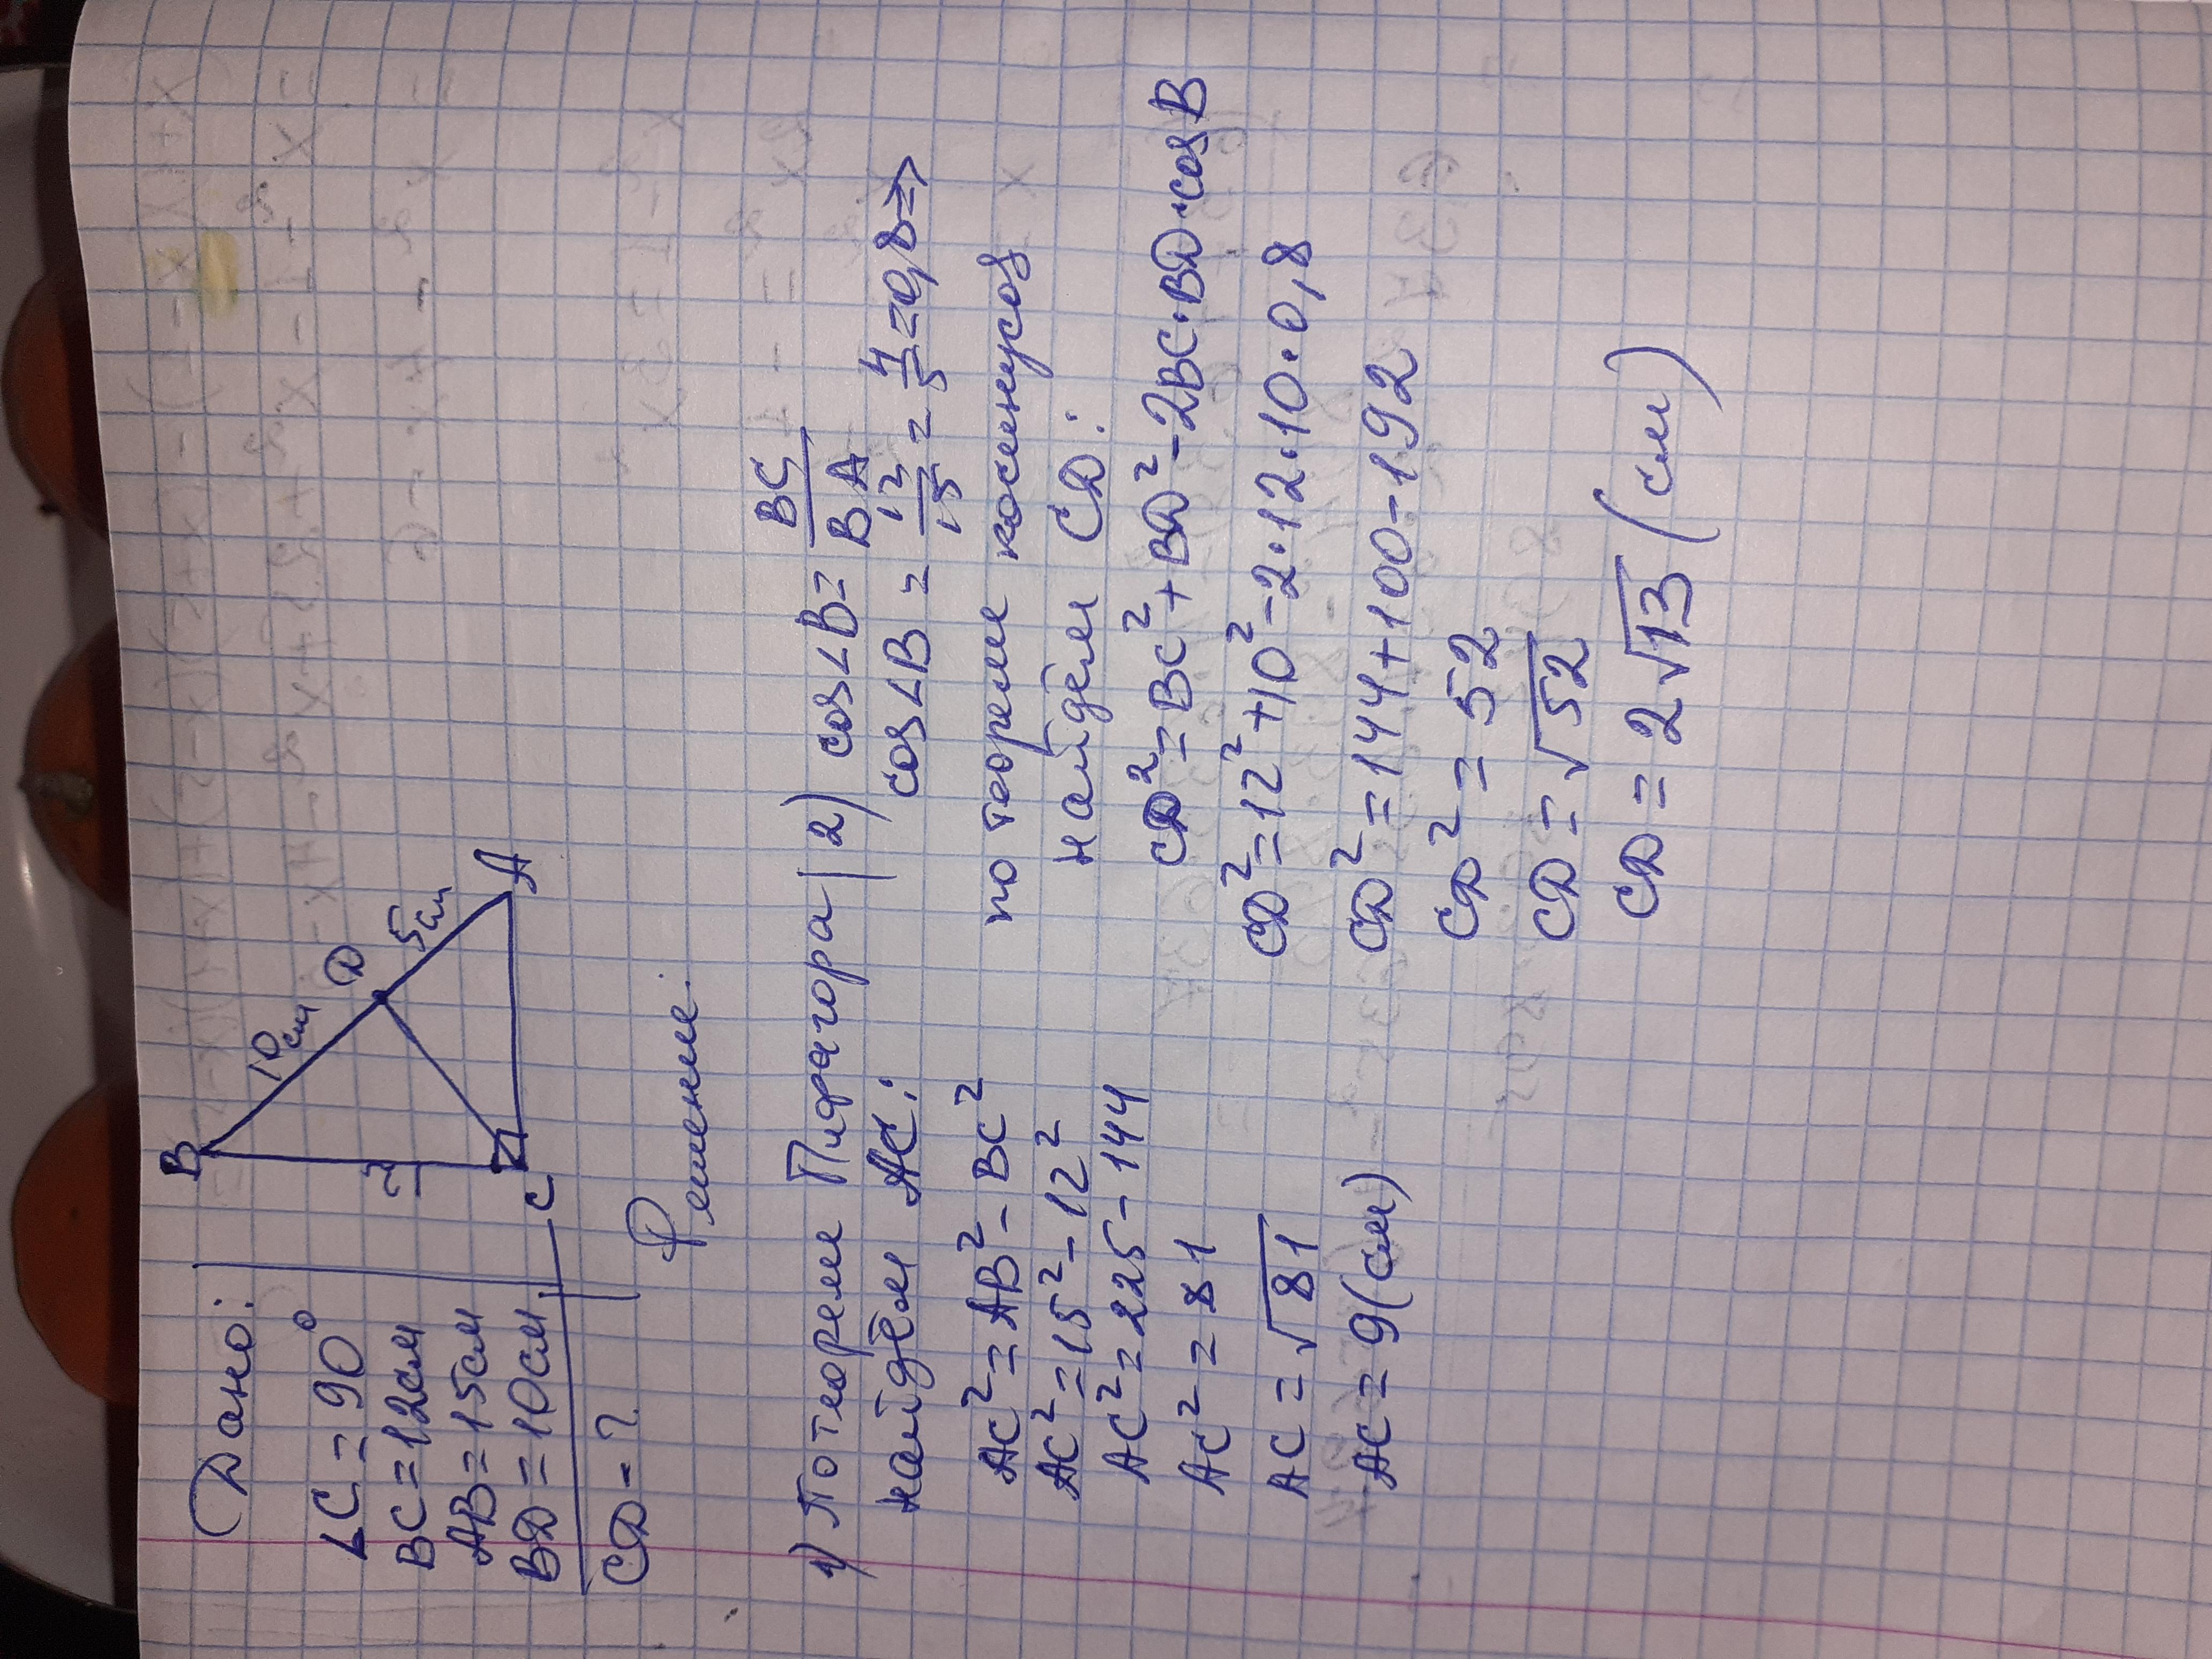 Дано:
∠C=90°
BC=12см
AB=15см
BD=10см
CD-?
B
10см
D
5см
A
12
C
Решение:
1) По теореме Пифагора
найдём AC:
AC²=AB²-BC²
AC²=15²-12²
AC²=225-144
AC²=81
AC=√81
AC=9(см)
2) cos∠B=BC/BA
cos∠B=12/15=4/5=0,8=>
по теореме косинусов
найдём CD:
CD²=BC²+BD²-2BC·BD·cosB
CD²=12²+10²-2·12·10·0,8
CD²=144+100-192
CD²=52
CD=√52
CD=2√13(см)